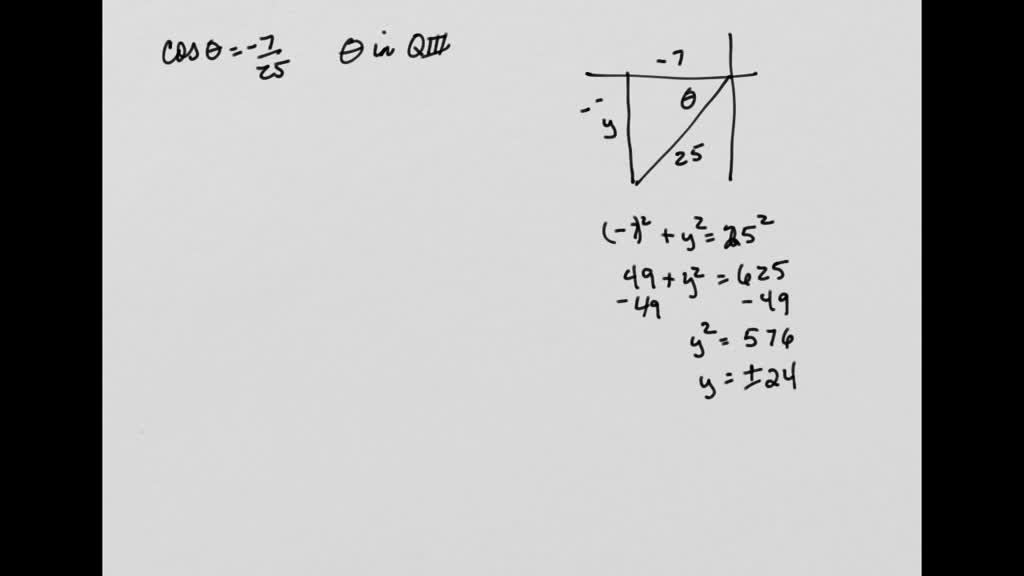 cos θ = -7/25 θ in QIII
-7
θ
- y
25
(-7)² + y² = 25²
49 + y² = 625
-49 -49
y² = 576
y = ±24